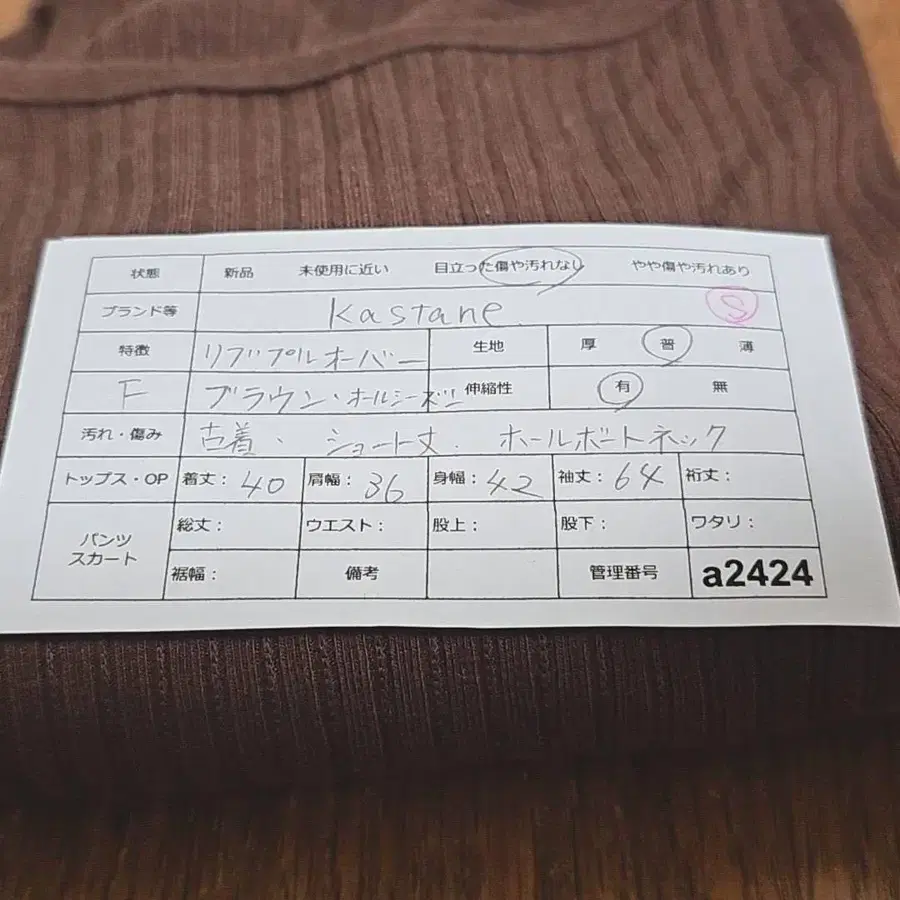 状態 新品 未使用に近い 目立った傷や汚れなし やや傷や汚れあり
ブランド等 Kastane. S
特徴 リブプルオーバー 生地 厚 普 薄
F ブラウン・オールシーズン 伸縮性 有 無
汚れ・傷み 古着、ショート丈.ホールボートネック
トップス・OP 着丈:40 肩幅:36 身幅:42 袖丈:64 裄丈:
パンツ スカート 総丈: ウエスト: 股上: 股下: ワタリ:
裾幅: 備考 管理番号 a2424